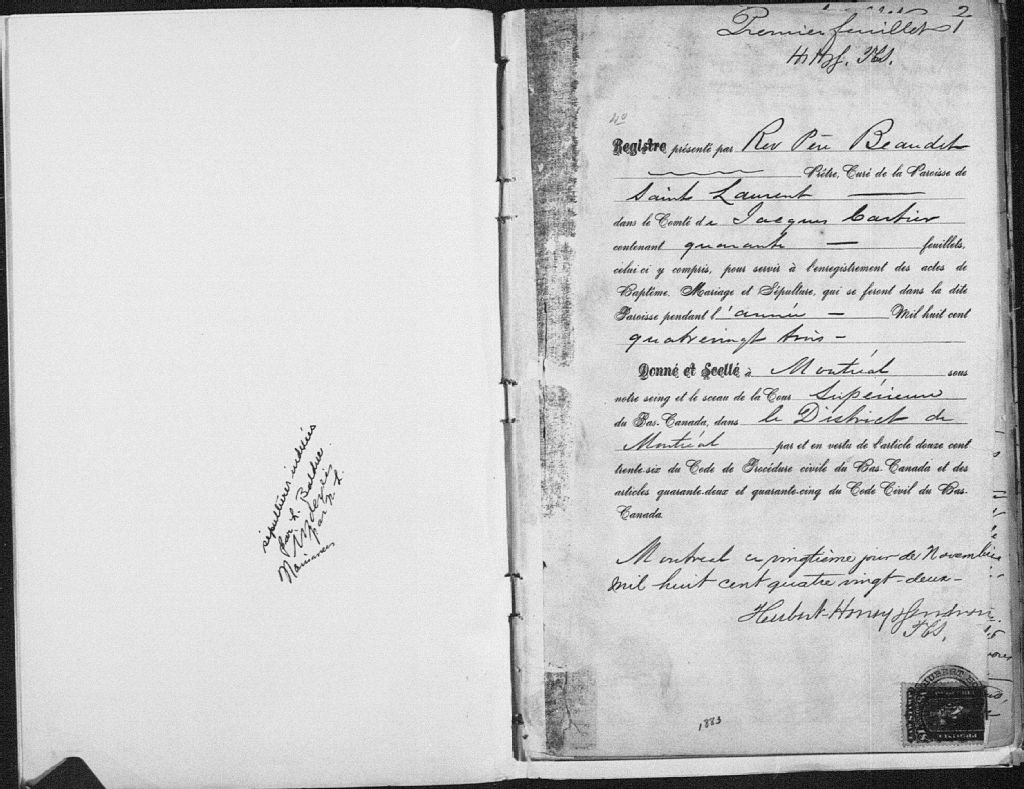 sépultures indexées
par L.
Indexés
par
Naissances
2
Premier feuillet 1
HHG. PCS.
4º
Registre présenté par Rev Père Beaudet
Prêtre, Curé de la Paroisse de
Saint Laurent
dans le Comté de Jacques Cartier
contenant quarante feuillets,
celui ci y compris, pour servir à l'enregistrement des actes de
Baptême, Mariage et Sépulture, qui se feront dans la dite
Paroisse pendant l'année Mil huit cent
quatrevingt trois -
Donné et Scellé à Montréal sous
notre seing et le sceau de la Cour Supérieure
du Bas-Canada, dans le District de
Montréal par et en vertu de l'article douze cent
trente-six du Code de Procédure civile du Bas-Canada et des
articles quarante-deux et quarante-cinq du Code Civil du Bas-
Canada.
Montreal ce vingtième jour de Novembre
Mil huit cent quatre vingt-deux-
Hubert-Honey Gendron
PCS.
1883